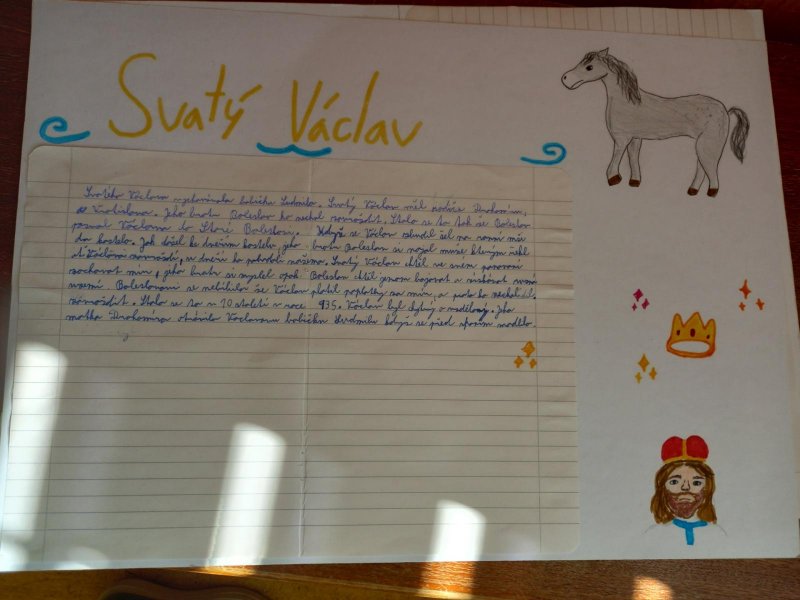 Svatý Václav
Svatého Václava vychovávala babička Ludmila. Svatý Václav měl rodiče Drahomíru,
a Vratislava. Jeho bratr Boleslav ho nechal zavraždit. Stalo se to tak že Boleslav
pozval Václava do Staré Boleslavi. Když se Václav vzbudil šel na ranní mši
do kostela. Jak došel ke dveřím kostela jeho bratr Boleslav si najal muže kterým řekl
ať Václava zavraždí, u dveří ho probodli nožem. Svatý Václav chtěl ve svém panování
zachovat mír, jeho bratr si myslel opak. Boleslav chtěl jenom bojovat a získávat nová
území. Boleslavovi se nelíbilo že Václav platil poplatky za mír, a proto ho nechal
zavraždit. Stalo se to v 10. století v roce 935. Václav byl chytrý a vzdělaný. Jeho
matka Drahomíra Václavovu babičku Ludmilu když se před spaním modlila.